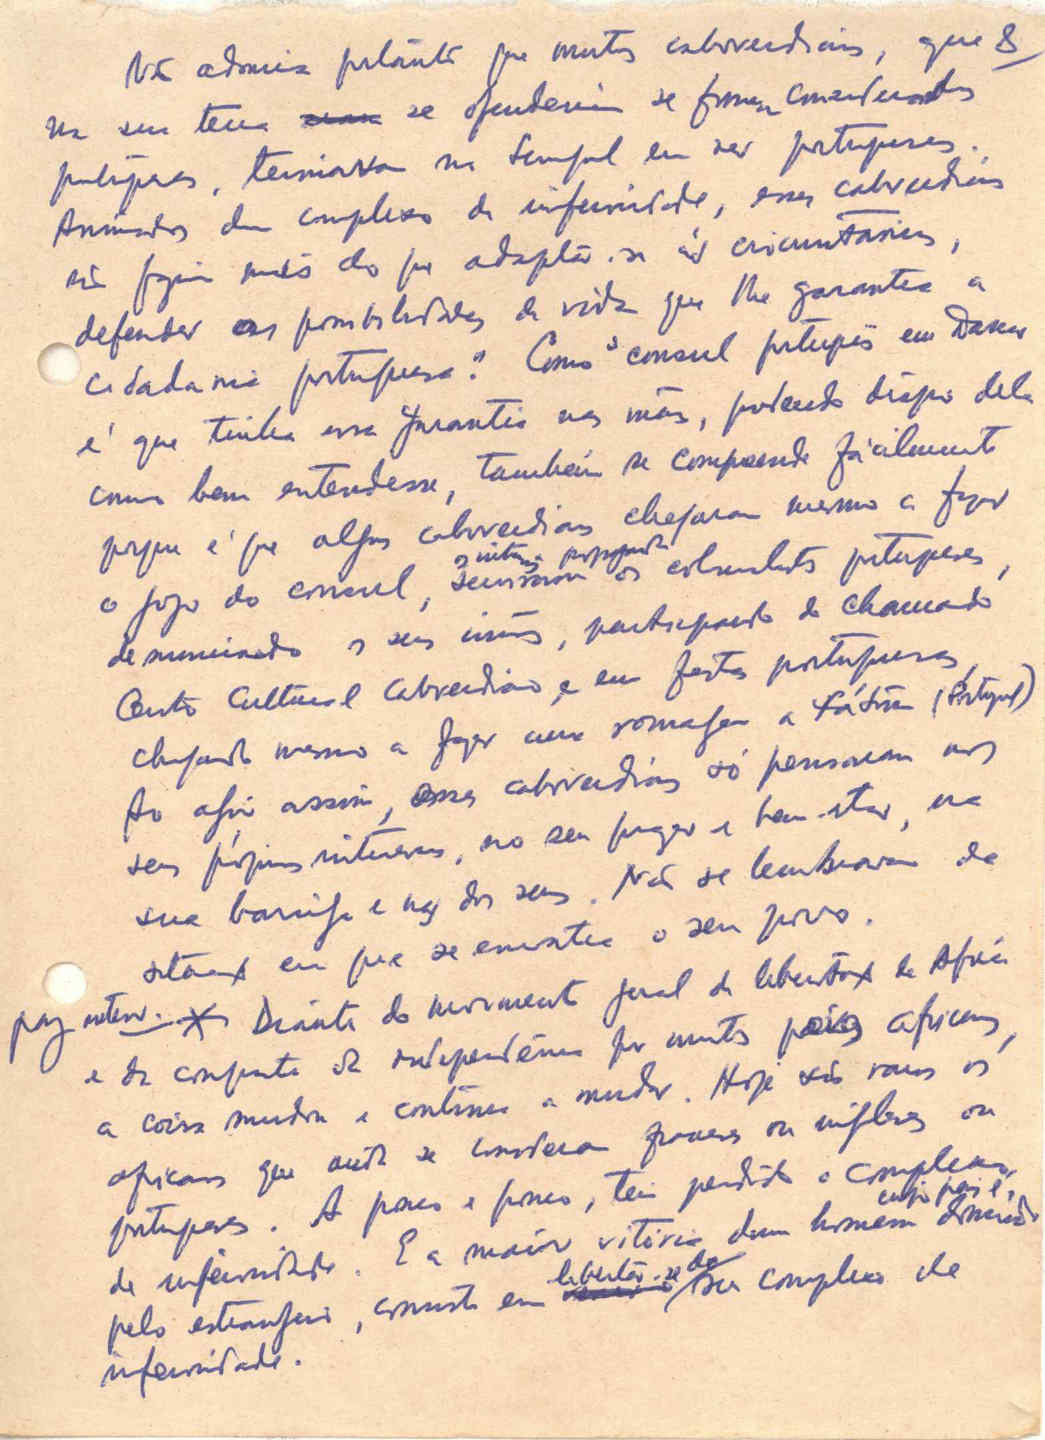 Não admira portanto que muitos caboverdianos, que 8
na sua terra se ofenderiam se fossem considerados
portugueses, teimassem no Senegal em ser portugueses.
Animados dum complexo de inferioridade, esses caboverdianos
não faziam mais do que adaptar-se às circunstâncias,
defender as possibilidades de vida que lhe garantia a
cidadania portuguesa. Como o consul português em Dakar
é que tinha essa garantia nas mãos, podendo dispor dela
como bem entendesse, também se compreende fácilmente
porque é que alguns caboverdianos chegaram mesmo a fazer
o jogo do consul, serviram os colonialistas portugueses,
denunciando os seus irmãos, participando do chamado
Centro Cultural Caboverdiano, e em festas portuguesas,
chegando mesmo a fazer uma romagem a Fátima (Portugal)
Ao agir assim, esses caboverdianos só pensavam nos
seus próprios interesses, no seu prazer e bem-estar, na
sua barriga e nas dos seus. Não se lembravam da
situação em que se encontra o seu povo.
pag anterior. Diante do movimento geral de libertação da África
e da conquista da independência por muitos países africanos,
a coisa mudou e continua a mudar. Hoje são raros os
africanos que ainda se consideram franceses ou ingleses ou
portugueses. A pouco e pouco, têm perdido o complexo
de inferioridade. E a maior vitória dum homem cujo país é dominado
pelo estrangeiro, consiste em libertar-se do seu complexo de
inferioridade.